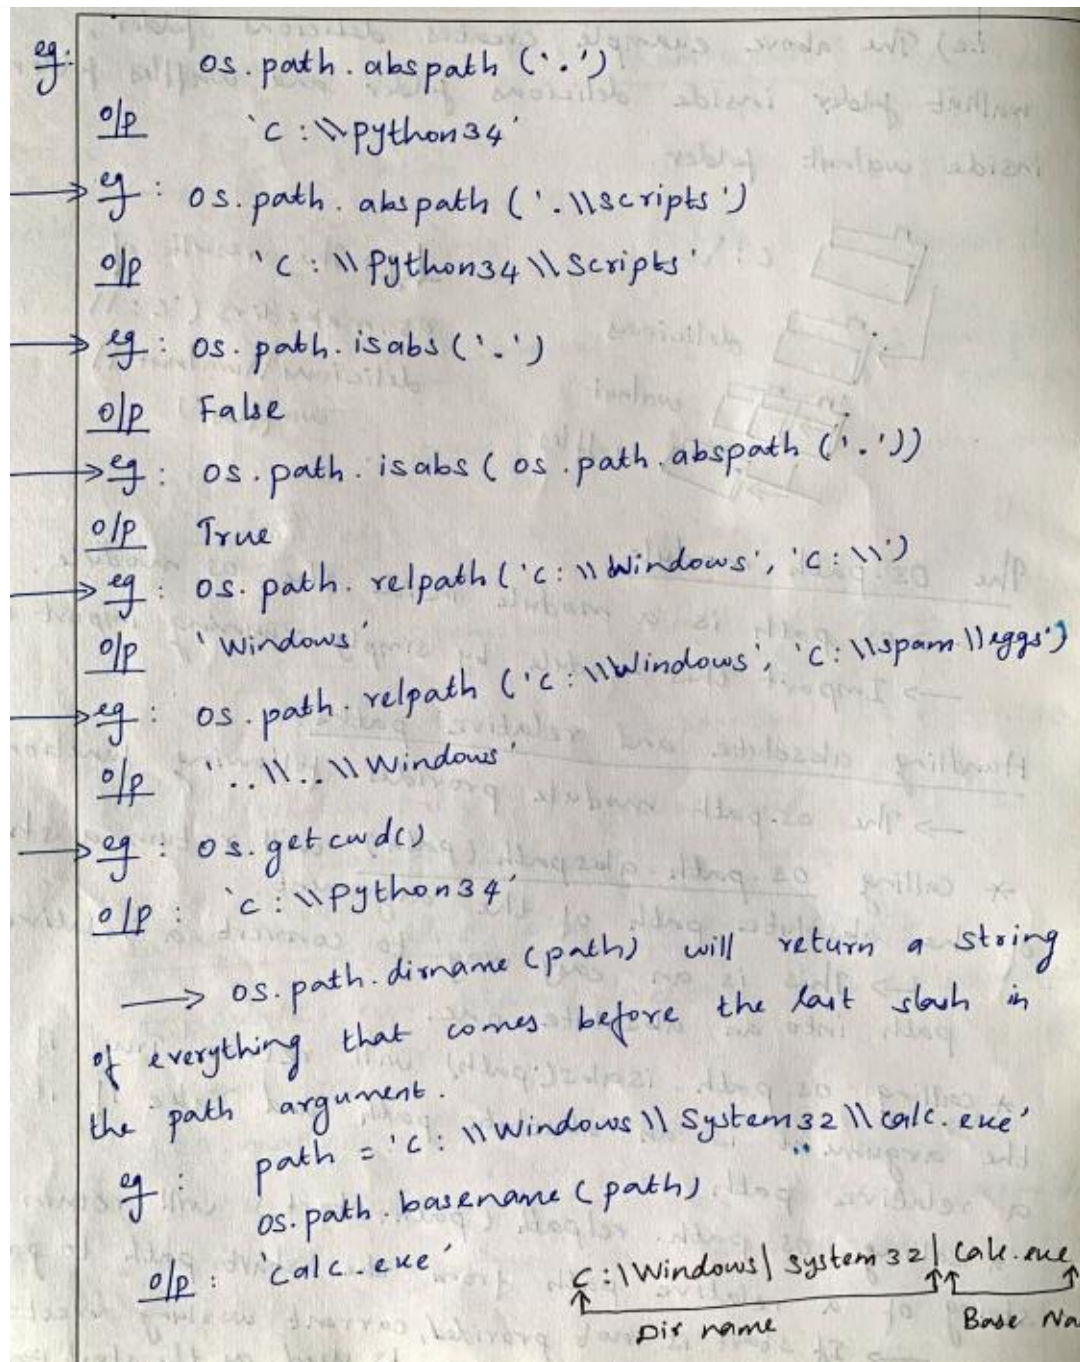 eg: os.path.abspath('.')
o/p 'C:\\Python34'
→ eg: os.path.abspath('.\\scripts')
o/p 'C:\\Python34\\Scripts'
→ eg: os.path.isabs('.')
o/p False
→ eg: os.path.isabs(os.path.abspath('.'))
o/p True
→ eg: os.path.relpath('C:\\Windows', 'C:\\')
o/p 'Windows'
→ eg: os.path.relpath('C:\\Windows', 'C:\\spam\\eggs')
o/p '..\\..\\Windows'
→ eg: os.getcwd()
o/p: 'C:\\Python34'
→ os.path.dirname(path) will return a string
of everything that comes before the last slash in
the path argument.
eg: path = 'C:\\Windows\\System32\\calc.exe'
os.path.basename(path)
o/p: 'calc.exe'
C:\Windows\System32\calc.exe
Dir name Base Na